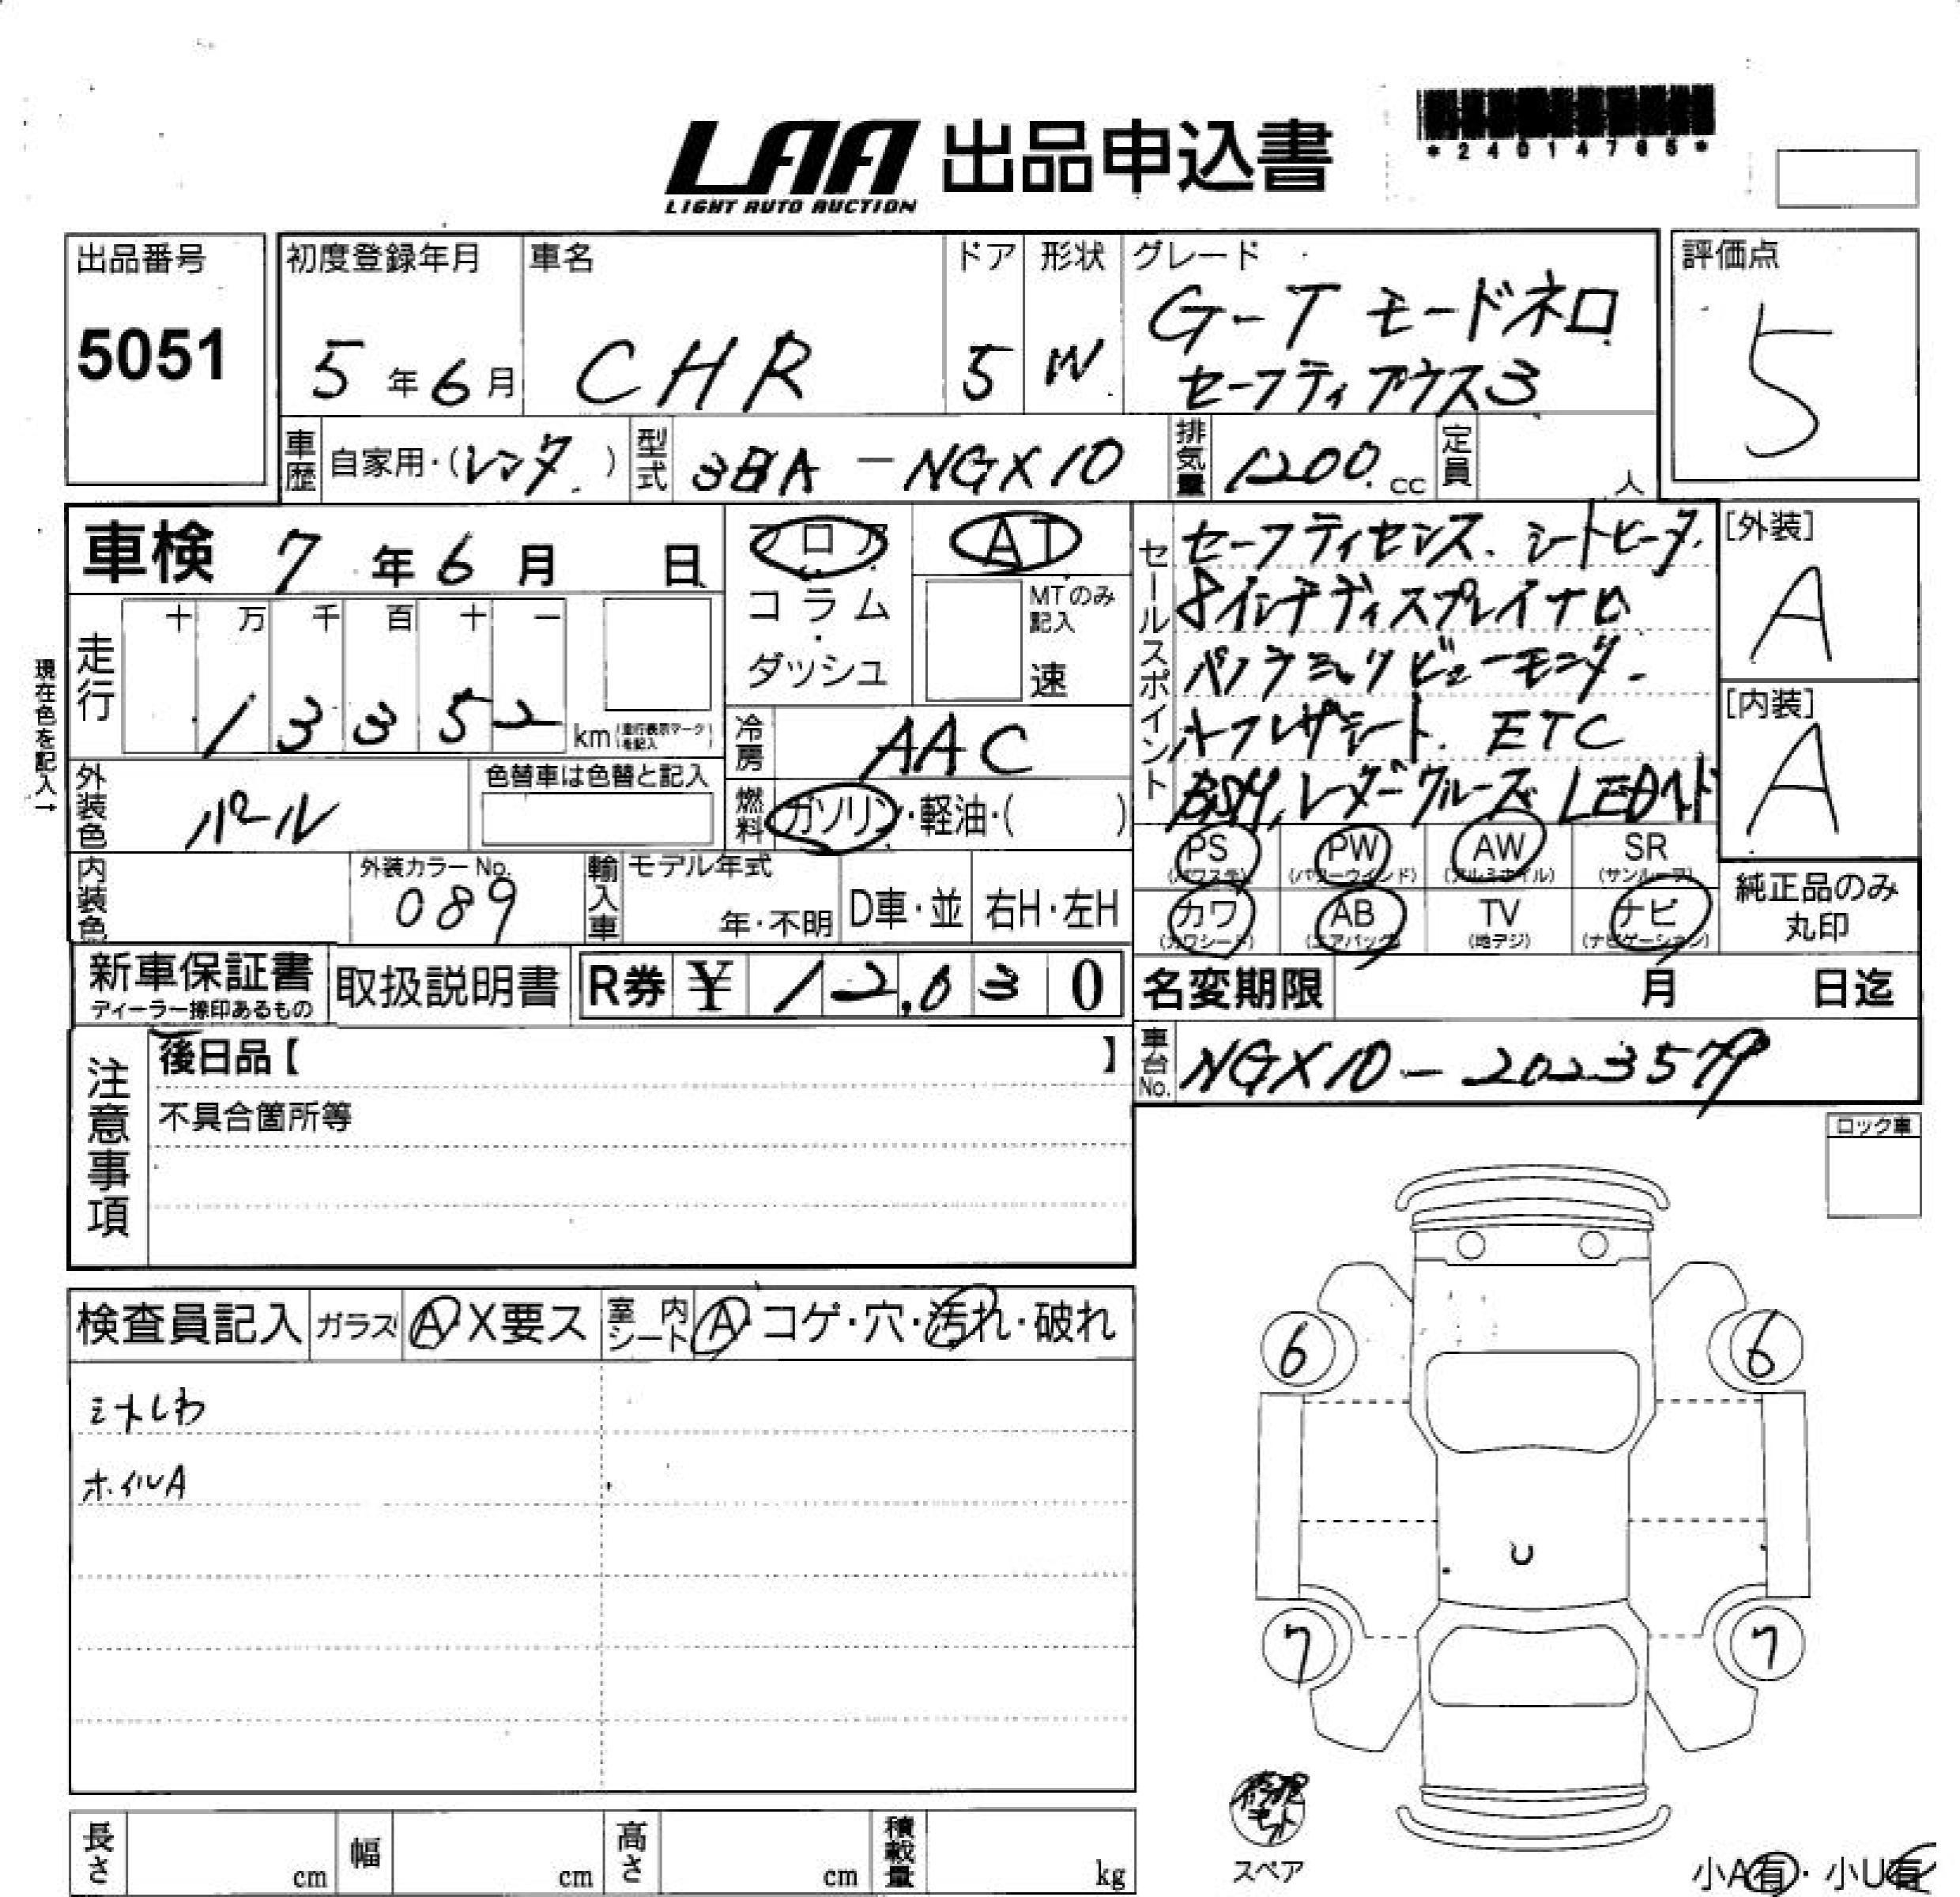 LAA 出品申込書
LIGHT AUTO AUCTION
*24014765*
出品番号
5051
初度登録年月
5年6月
車名
CHR
ドア
5
形状
W
グレード
G-T モードネロ
セーフティプラス3
評価点
5
車歴
自家用・(レンタ)
型式
3BA-NGX10
排気量
1200.cc
定員
人
車検 7年6月 日
フロア
コラム
・
ダッシュ
AT
MTのみ
記入
速
セールスポイント
セーフティセンス、シートヒータ、
8インチディスプレイナビ
パノラミックビューモニター
ハーフレザーシート、ETC
BSM、レーダークルーズ LEDヘッド
[外装]
A
[内装]
A
現在色を記入→
走行
十 万 千 百 十 一
1 3 3 5 2 km (走行表示マークを記入)
冷房
AAC
外装色
パール
色替車は色替と記入
燃料
ガソリン・軽油・( )
内装色
外装カラーNo.
089
輸入車
モデル年式
年・不明
D車・並
右H・左H
PS
(パワステ)
PW
(パワーウインド)
AW
(アルミホイル)
SR
(サンルーフ)
カワ
(カワシート)
AB
(エアバッグ)
TV
(地デジ)
ナビ
(ナビゲーション)
純正品のみ
丸印
新車保証書
ディーラー捺印あるもの
取扱説明書
R券 ¥ 12,030
名変期限 月 日迄
車台No.
NGX10-2023579
注意事項
後日品【 】
不具合箇所等
ロック車
検査員記入
ガラス
A・X要ス
室内シート
A・コゲ・穴・汚れ・破れ
ホイルA
6
6
C
7
7
修理
キット
スペア
長さ cm
幅 cm
高さ cm
積載量 kg
小A有・小U有